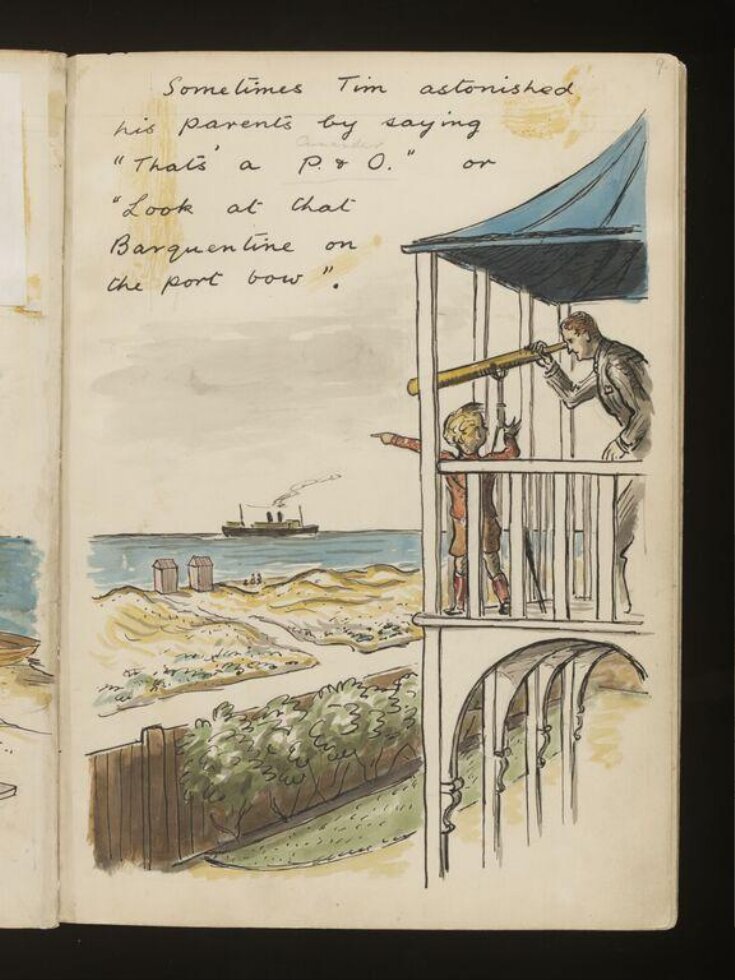 Sometimes Tim astonished
his parents by saying
"Thats' a P. & O." or
"Look at that
Barquentine on
the port bow".
9